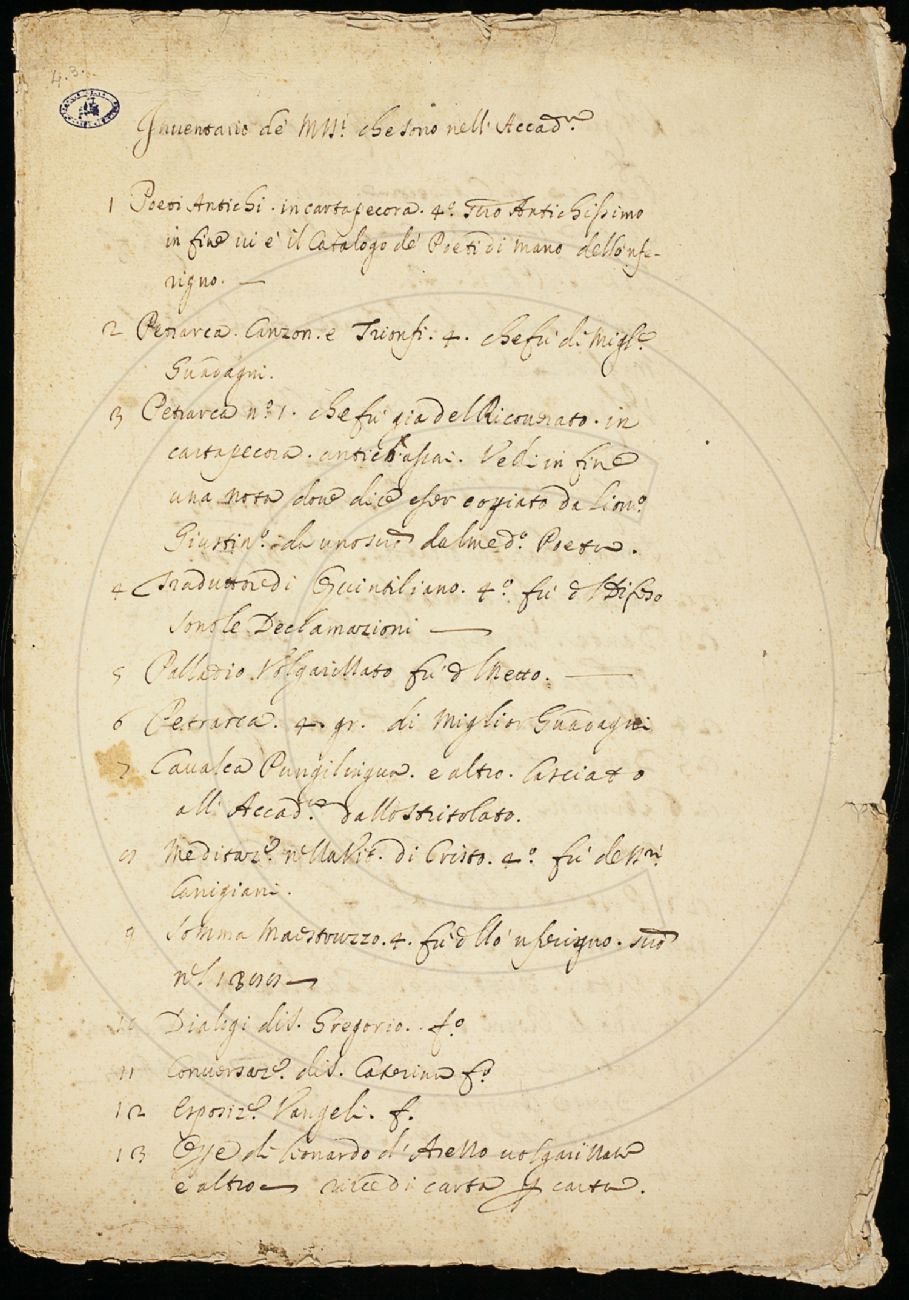 4. 3.
Inventario de' MSS.ti che sono nell' Accad.a
1 Poeti Antichi. in cartapecora. 4.o Antichissimo
in fine vi è il Catalogo de' Poeti di mano dello 'nfe-
rigno. —
2 Petrarca. Canzon. e Trionfi. 4. che fù di Migl.e
Guadagni.
3 Petrarca n.o 1. che fù già del Ricovrato. in
cartapecora. antich. assai. Vedi in fine
una nota dove dice esser copiato da Lion.o
Giustin.o da uno suo dal med.o Poeta.
4 di Quintiliano. 4.o fù
sono le Declamazioni —
5 Palladio Volgarizzato fù d l Netto. —
6 Petrarca. 4. gr. di Miglior Guadagni
7 Cavalca Pungilingua. e altro. Lasciato
all' Accad.a dallo Stritolato.
8 Meditaz.e nella Vit. di Cristo. 4.o fù de
Canigiani.
9 Somma Maestruzzo. 4. fù dello 'nferigno.
nel —
10 Dialogi di S. Gregorio. f.o
11 Conversaz.e di S. Caterina f.o
12 Esposiz.e Vangeli. f.
13 di Lionardo d' Arezzo volgarizzate
e altro — di carta carta.